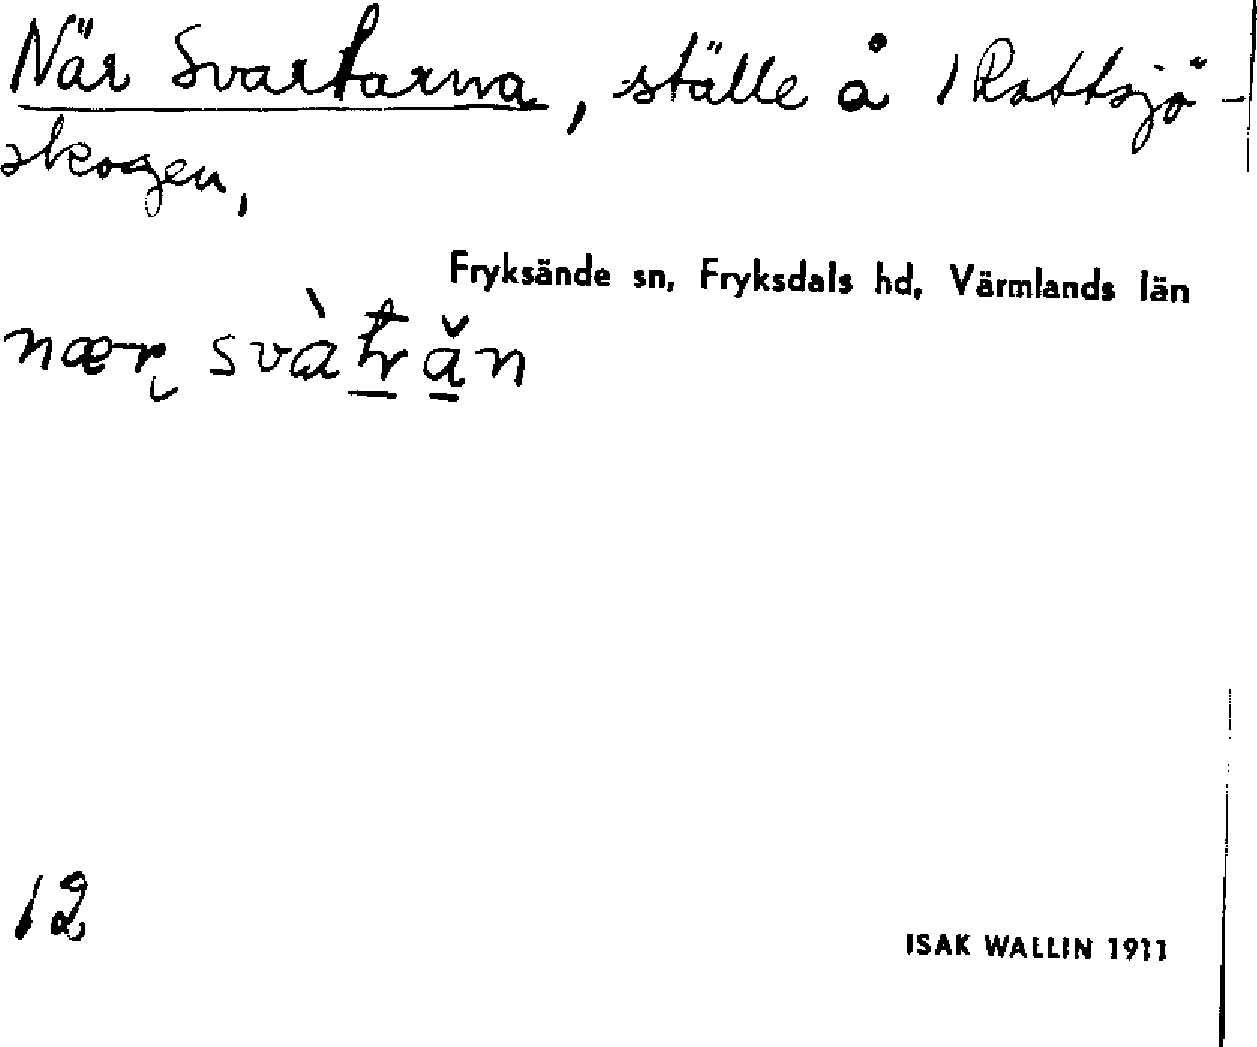 När Svartarna, ställe å 1 Rattsjö-
skogen,
Fryksände sn, Fryksdals hd, Värmlands län
nær
12
ISAK WALLIN 1911